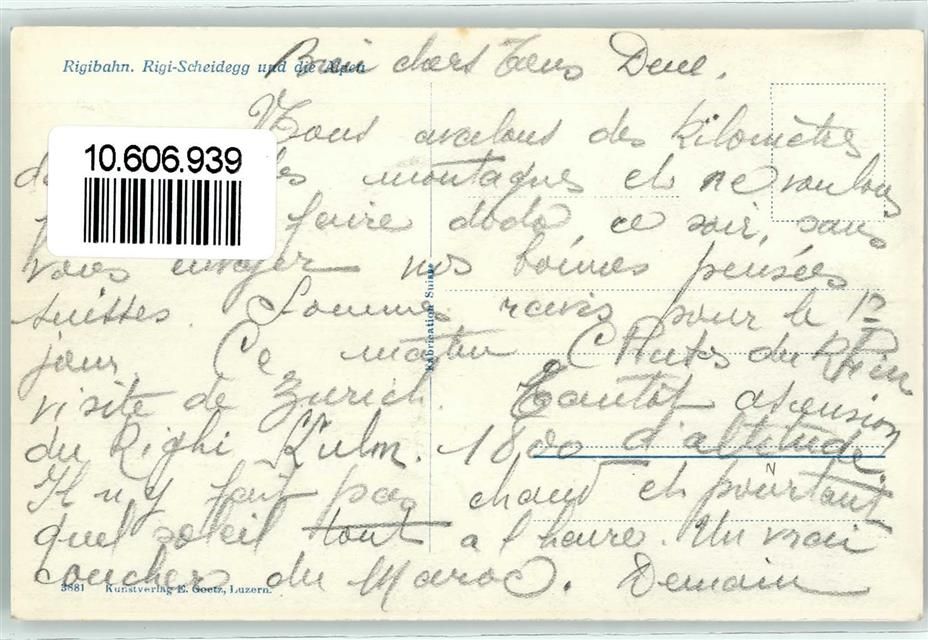 Rigibahn. Rigi-Scheidegg und die Alpen
chers Tous Deux.
Nous avalons des Kilomètres
10.606.939
montagnes et ne voulons
faire dodo ce soir, sans
vous envoyer nos bonnes pensées
suisses. Sommes ravis pour le 1er
jour. Ce matin Chutes du Rhin
visite de Zurich. Tantôt ascension
du Righi Kulm. 1800 d'altitude
Il n'y fait pas chaud et pourtant
quel soleil tout a l heure. Un vrai
coucher du Maroc. Demain
Fabrication Suisse
3881 Kunstverlag E. Goetz, Luzern.